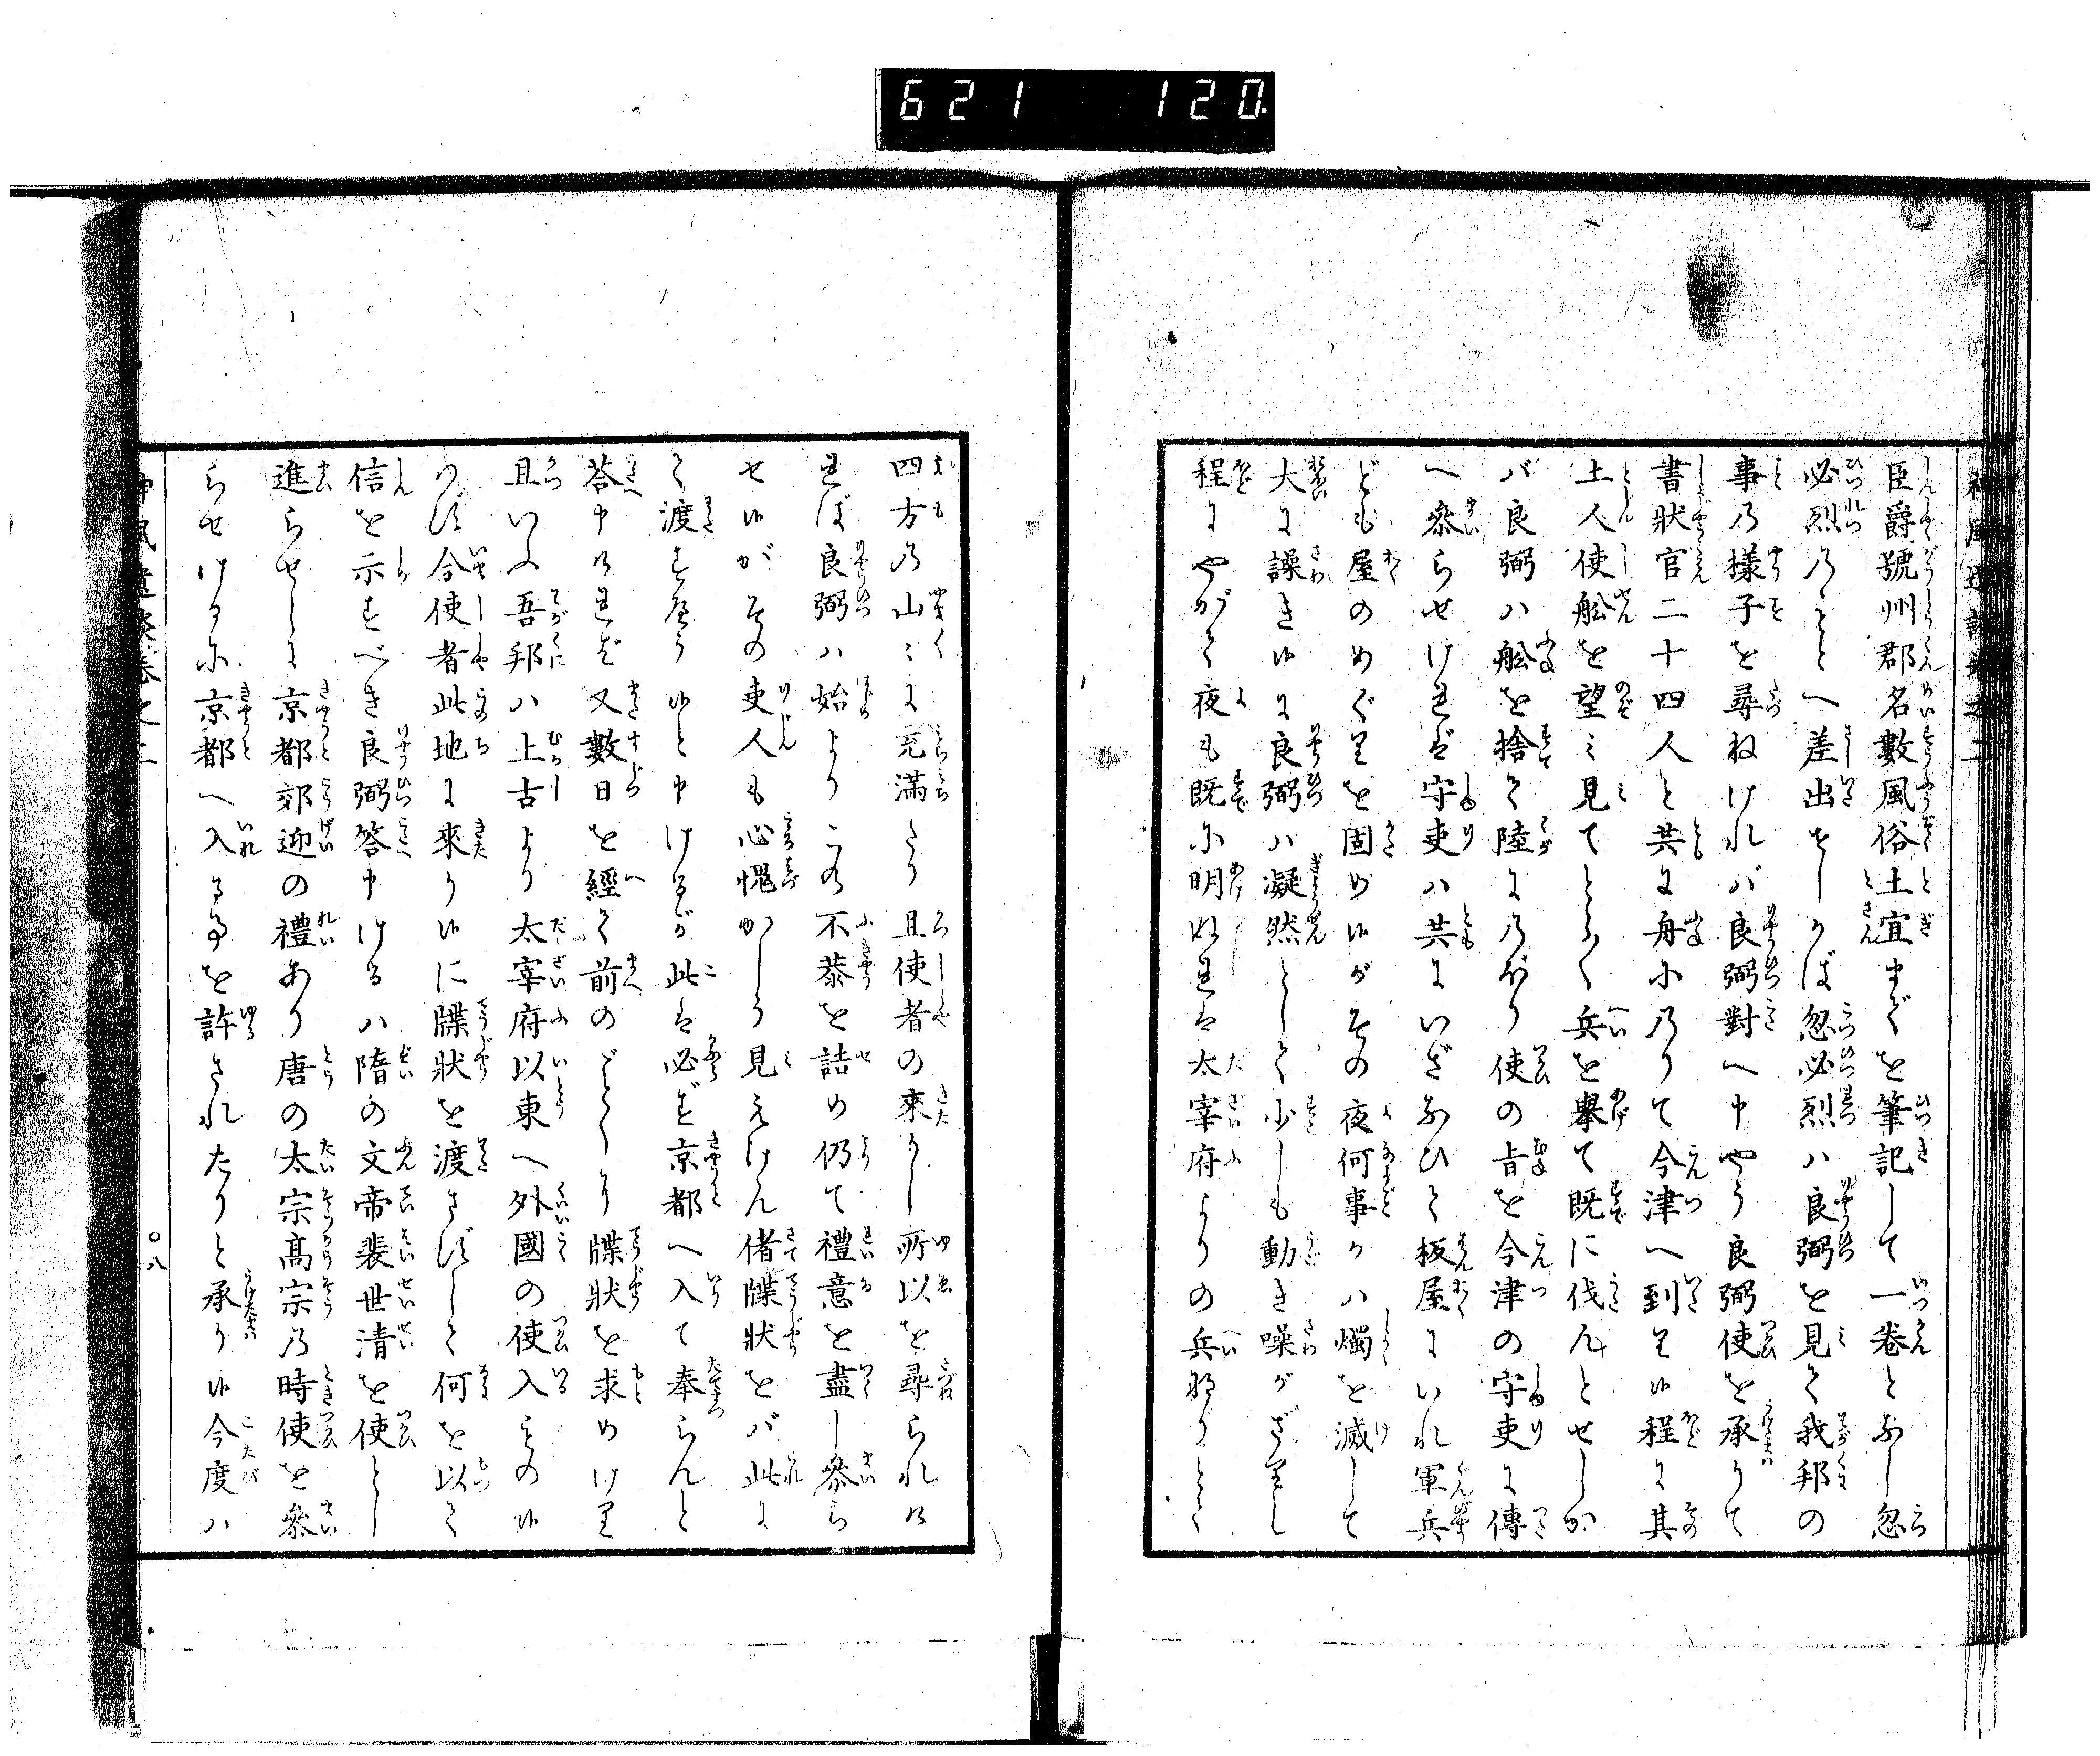 621 120
臣爵號州郡名數風俗土宜までを筆記して一卷となし忽
必烈のもとへ差出せしかば忽必烈ハ良弼を見て我邦の
事の樣子を尋ねけれバ良弼對へ申やう良弼使を承りて
書狀官二十四人と共に舟に乃りて今津へ到り候程に其
土人使舩を望ミ見てとかく兵を擧て既に伐んとせしか
バ良弼ハ舩を捨て陸にのぼり使の旨を今津の守吏に傳
へ參らせけれど守吏ハ共にいざなひて板屋にいれ軍兵
ども屋のめぐりを固め候がその夜何事かハ燭を滅して
大に譟き候に良弼ハ凝然として少しも動き噪がざりし
程にやがて夜も既に明ぬれば太宰府よりの兵なりとて
四方の山々に充滿たり且使者の來りし所以を尋られぬ
れば良弼ハ始よりこの不恭を詰め仍て禮意を盡し參ら
せ候がその吏人も心愧かしう見えけん偖牒狀をバ此に
て渡すべう候と申けるが此は必ず京都へ入て奉らんと
荅申ぬれど又數日を經て前のごとくに牒狀を求めけり
且いふ吾邦ハ上古より太宰府以東へ外國の使入もの候
はず今使者此地に來り候に牒狀を渡さずして何を以て
信を示すべき良弼答申けるハ隋の文帝裴世清を使とし
進らせしに京都郊迎の禮あり唐の太宗髙宗の時使を參
らせけるに京都へ入る事を許されたりと承り候今度ハ
〇八